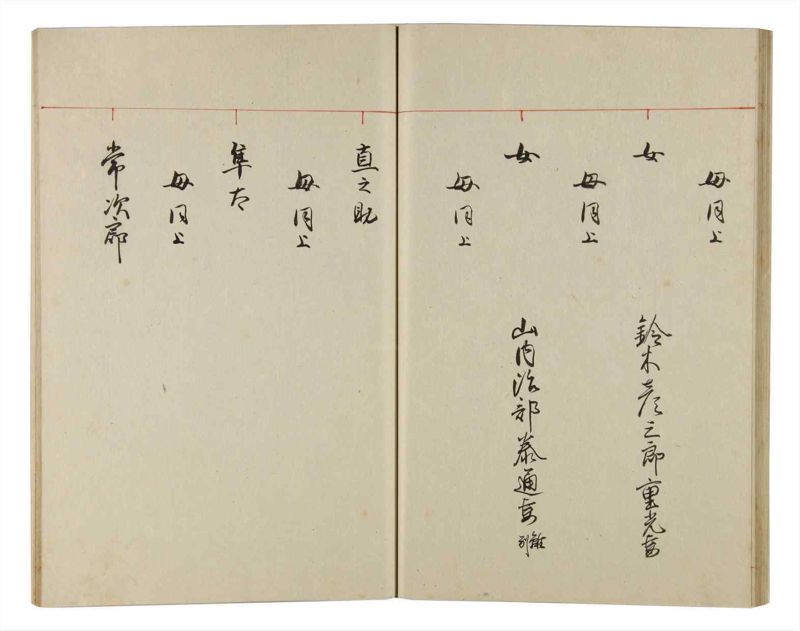 母同上
女
鈴木彦三郎重光妻
母同上
女
山内治部泰通妻
離別
母同上
直之助
母同上
隼太
母同上
常次郎